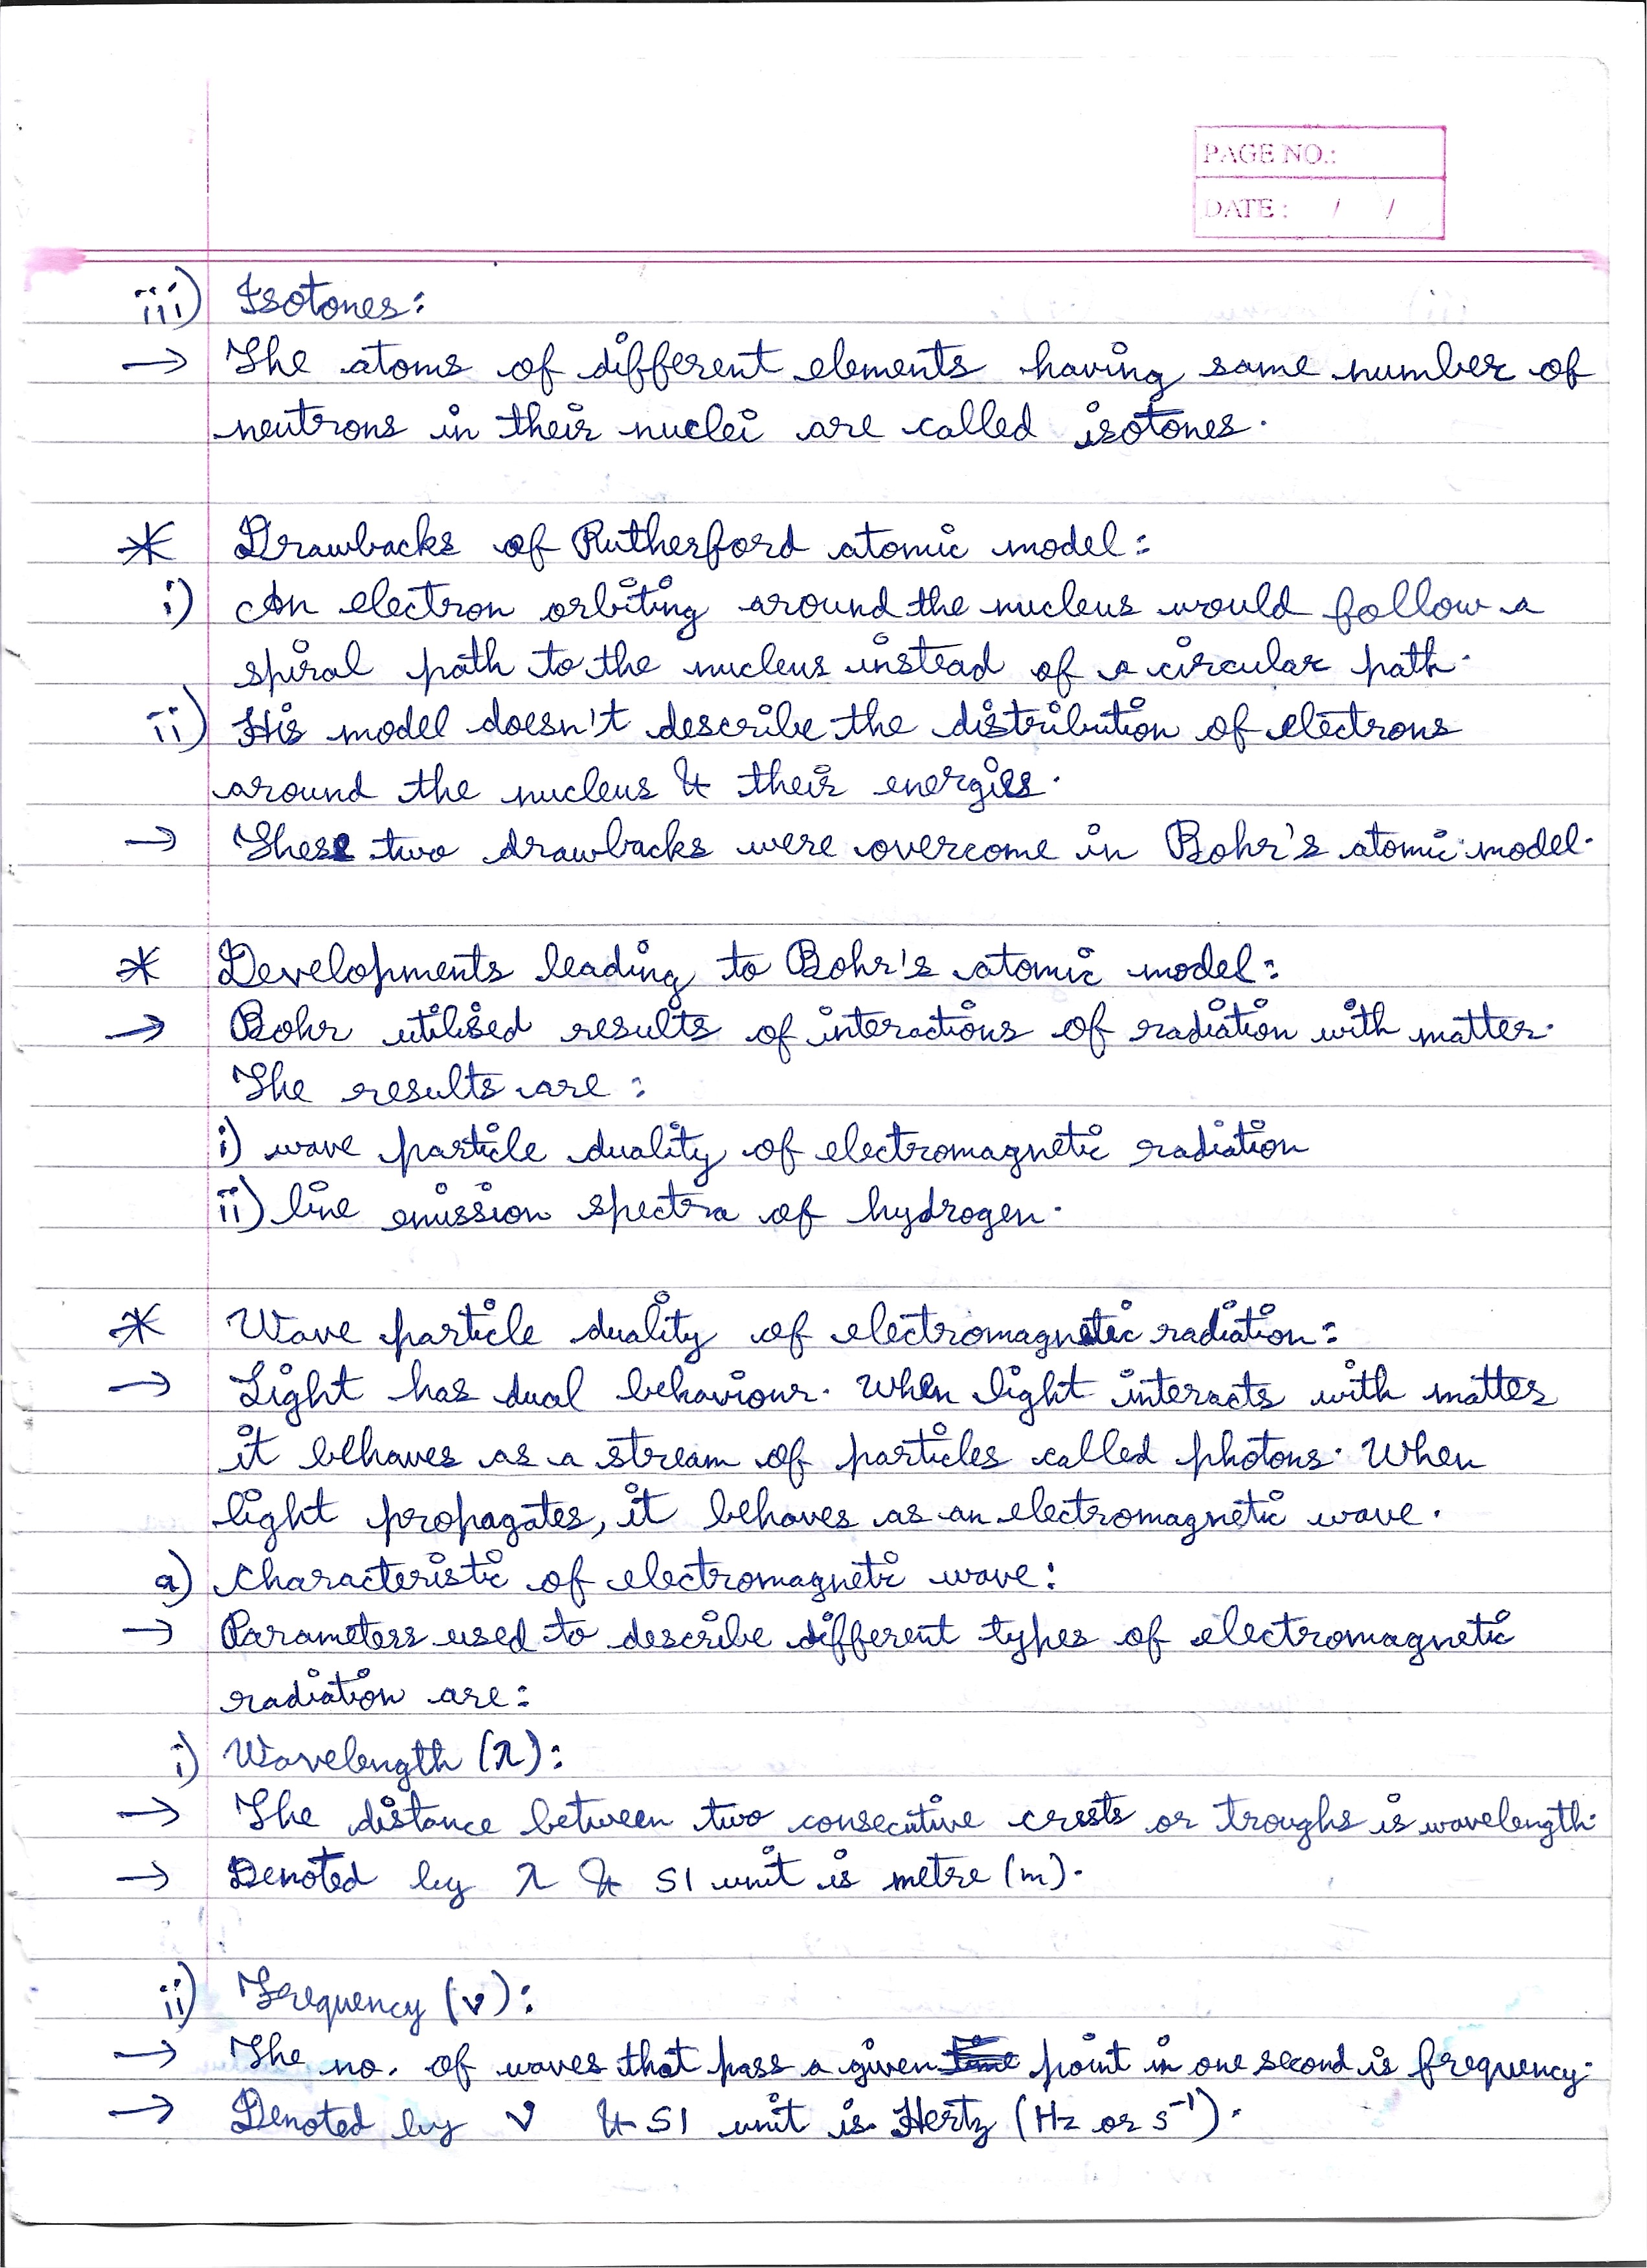 PAGE NO.:
DATE: / /
iii) Isotones:
→ The atoms of different elements having same number of
neutrons in their nuclei are called isotones.
* Drawbacks of Rutherford atomic model:
i) An electron orbiting around the nucleus would follow a
spiral path to the nucleus instead of a circular path.
ii) His model doesn't describe the distribution of electrons
around the nucleus & their energies.
→ These two drawbacks were overcome in Bohr's atomic model.
* Developments leading to Bohr's atomic model:
→ Bohr utilised results of interactions of radiation with matter.
The results are:
i) wave particle duality of electromagnetic radiation
ii) line emission spectra of hydrogen.
* Wave particle duality of electromagnetic radiation:
→ Light has dual behaviour. When light interacts with matter
it behaves as a stream of particles called photons. When
light propagates, it behaves as an electromagnetic wave.
a) Characteristic of electromagnetic wave:
→ Parameters used to describe different types of electromagnetic
radiation are:
i) Wavelength (λ):
→ The distance between two consecutive crests or troughs is wavelength.
→ Denoted by λ & SI unit is metre (m).
ii) Frequency (ν):
→ The no. of waves that pass a given point in one second is frequency.
→ Denoted by ν & SI unit is Hertz (Hz or s⁻¹).